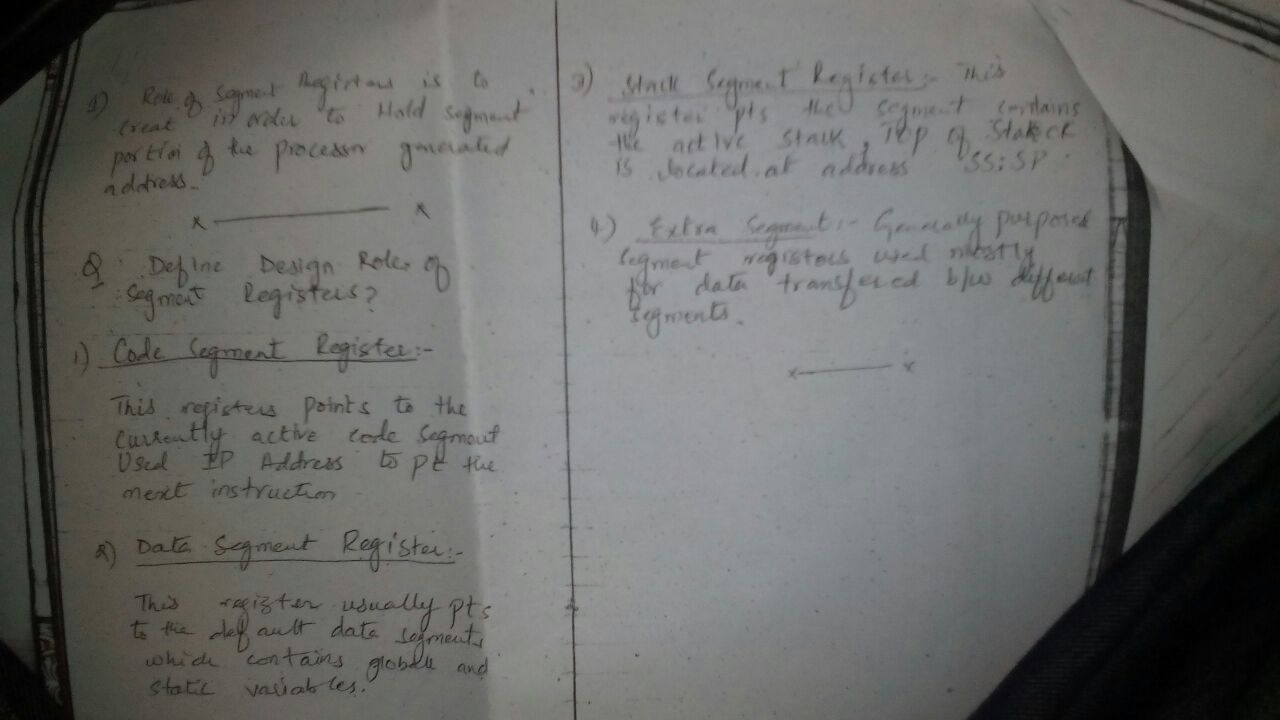 1) Role of Segment Registers is to
creat in order to Hold segment
portion of the processor generated
address.
x x
Q Define Design Roles of
Segment Registers?
1) Code Segment Register:-
This registers points to the
currently active code Segment
Used IP Address to pt the
next instruction
2) Data Segment Register:-
This register usually pts
to the default data segments
which contains globele and
static variables.
3) Stack Segment Register:- This
register pts the segment contains
the active stack, Top of Stack
is located at address SS:SP.
4) Extra Segment:- Generally purposed
segment registers used mostly
for data transfered b/w different
segments.
x x